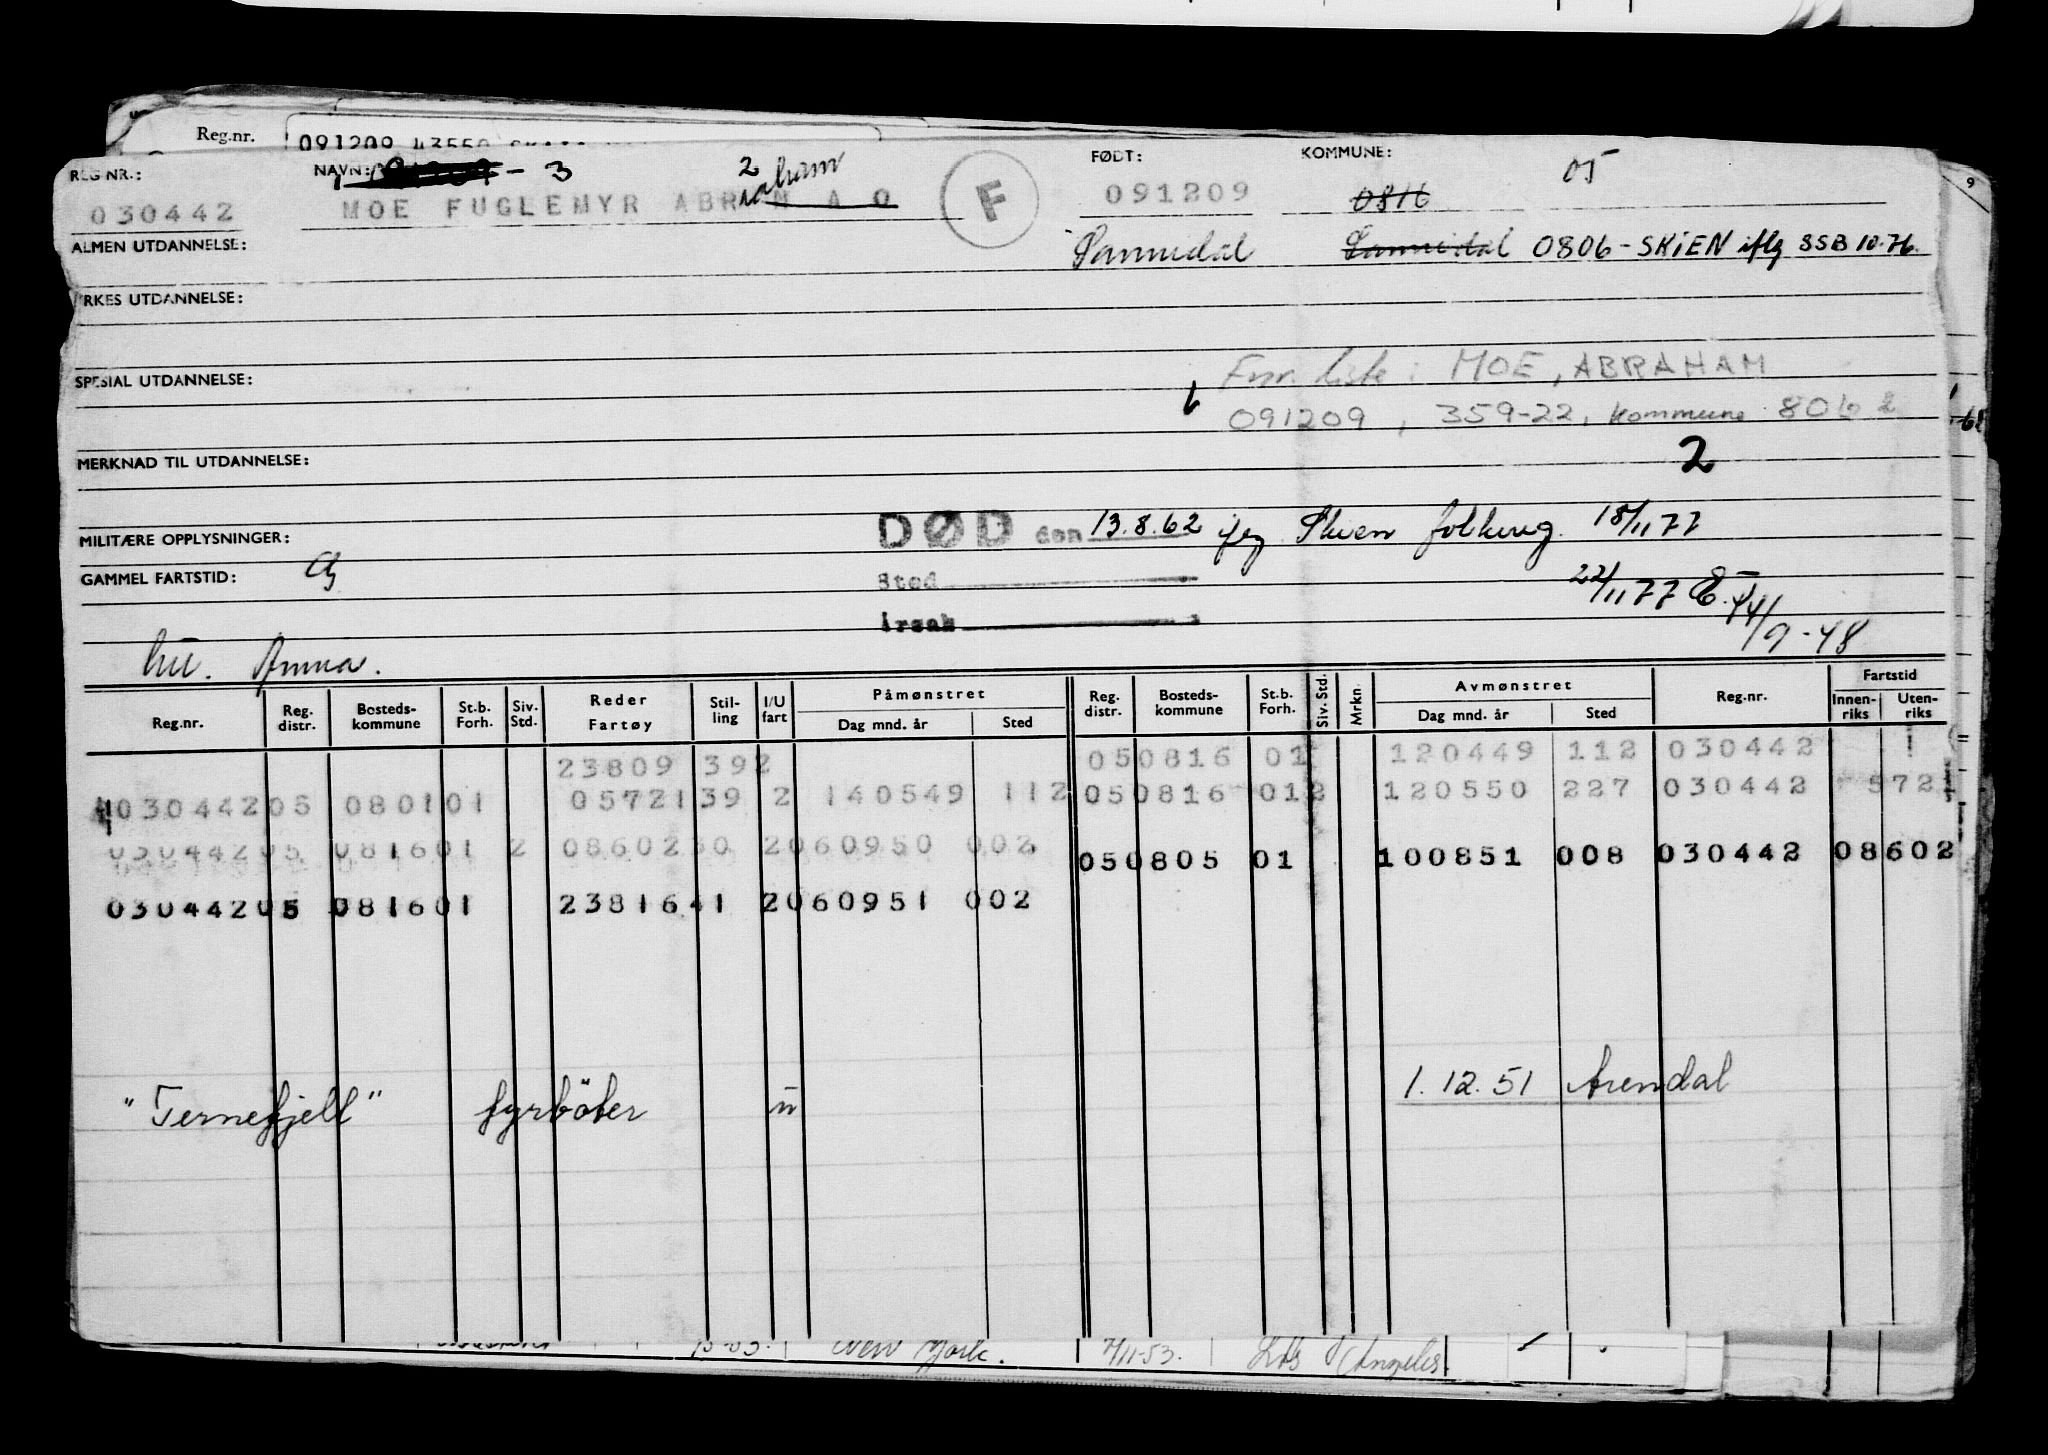 Reg.nr. 091209 43550
REG NR.: NAVN: - 3 2 raham FØDT: KOMMUNE: 05
030442 MOE FUGLEMYR ABRAM A O F 091209 0816
ALMEN UTDANNELSE: Sannidal Sannidal 0806-SKIEN iflg SSB 10.76.
YRKES UTDANNELSE:
SPESIAL UTDANNELSE: Fnr. liste: MOE, ABRAHAM
091209, 359-22, kommune 806
2
MERKNAD TIL UTDANNELSE:
MILITÆRE OPPLYSNINGER: DØD den 13.8.62 iflg Skien folkereg. 18/11 77
GAMMEL FARTSTID: Sted 22/11 77
Årsak 14/9-48
hu. Anna.
Reg.nr. Reg. distr. Bosteds-kommune St.b. Forh. Siv. Std. Reder Fartøy Stil-ling I/U fart Påmønstret Dag mnd. år Sted Reg. distr. Bosteds-kommune St.b. Forh. Siv. Std. Mrkn. Avmønstret Dag mnd. år Sted Reg.nr. Fartstid Innen-riks Uten-riks
23809 392 050816 01 120449 112 030442
030442 05 0801 01 05721 39 2 140549 112 050816 012 120550 227 030442 572
030442 05 0816 01 2 08602 30 2 060950 002 050805 01 100851 008 030442 08602
030442 05 0816 01 23816 41 2 060951 002
"Ternefjell" fyrböter u 1.12.51 Arendal
New York. 7/11-53. Los Angeles